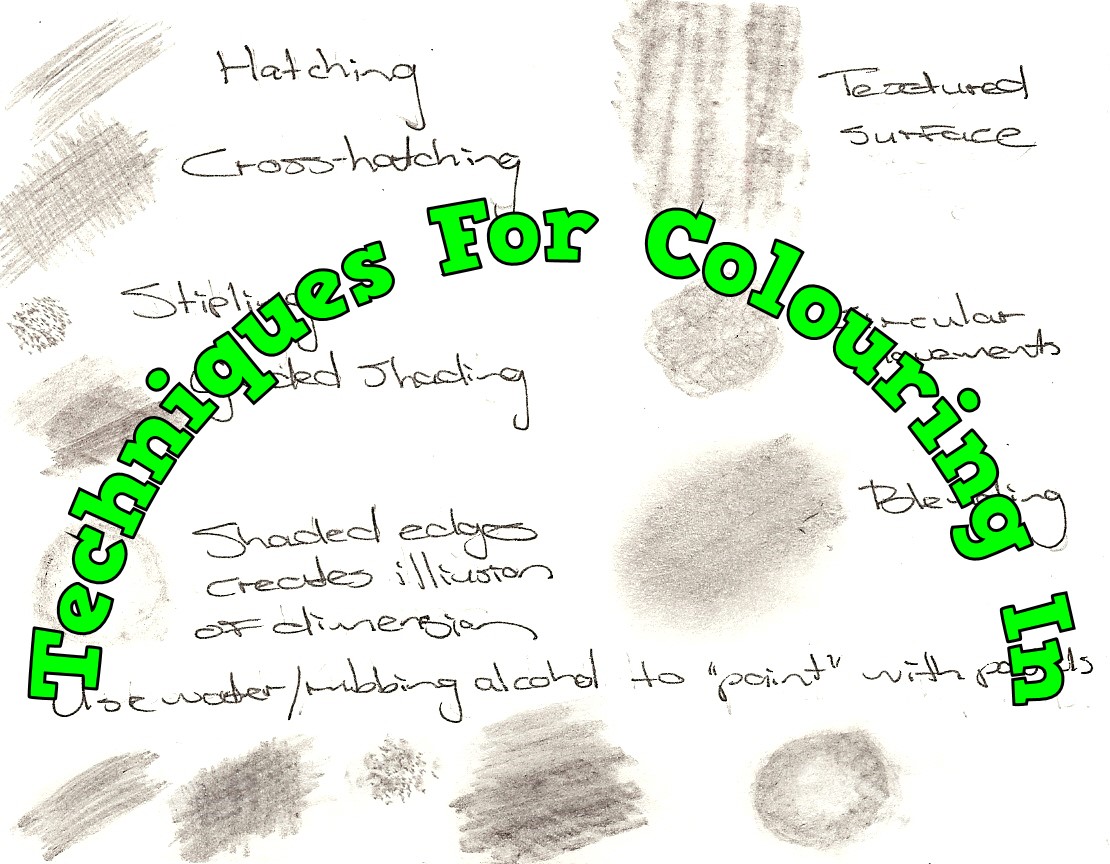 Techniques For Colouring In
Hatching
Cross-hatching
Stipling
Graded Shading
Shaded edges
creates illusion
of dimension
Textured
surface
Circular
movements
Blending
Use water/rubbing alcohol to "paint" with pencils